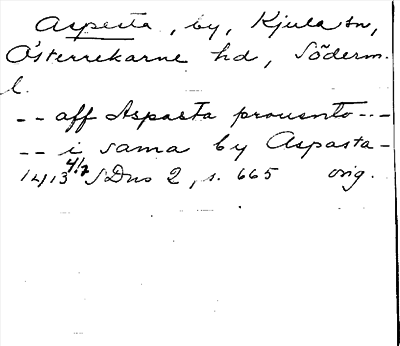 Aspesta, by, Kjula sn,
Österrekarne hd, Söderm.
l.
-- aff Aspasta prouento --
-- i sama by Aspasta -
1413 4/2 SDns 2, s. 665 orig.